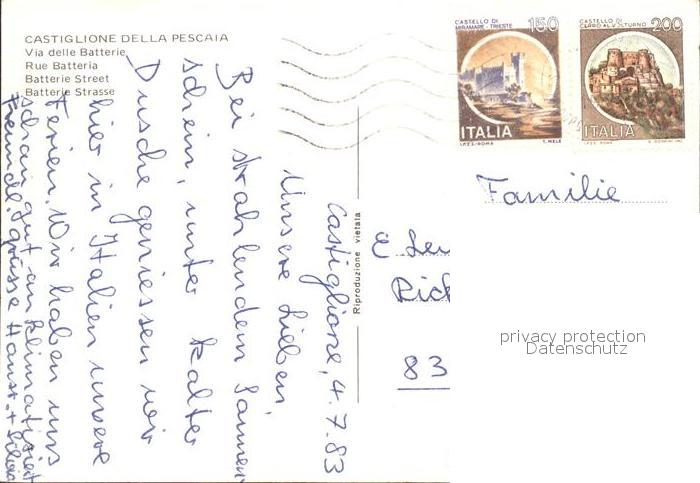 CASTIGLIONE DELLA PESCAIA
Via delle Batterie
Rue Batteria
Batterie Street
Batterie Strasse
Castiglione, 4.7.83
Unsere Lieben,
Bei strahlendem Sonnen
schein, unter kalter
Dusche geniessen wir
hier in Italien unsere
Ferien. Wir haben uns
schon gut an klimatisiert
Freundl. Grüsse Hansr. + Silvia
Riproduzione vietata
CASTELLO DI
MIRAMARE - TRIESTE
150
ITALIA
I.P.Z.S. - ROMA
T. MELE
CASTELLO DI
CERRO AL VOLTURNO
200
ITALIA
I.P.Z.S. ROMA
Familie
E Leu
Rick
83
privacy protection
Datenschutz